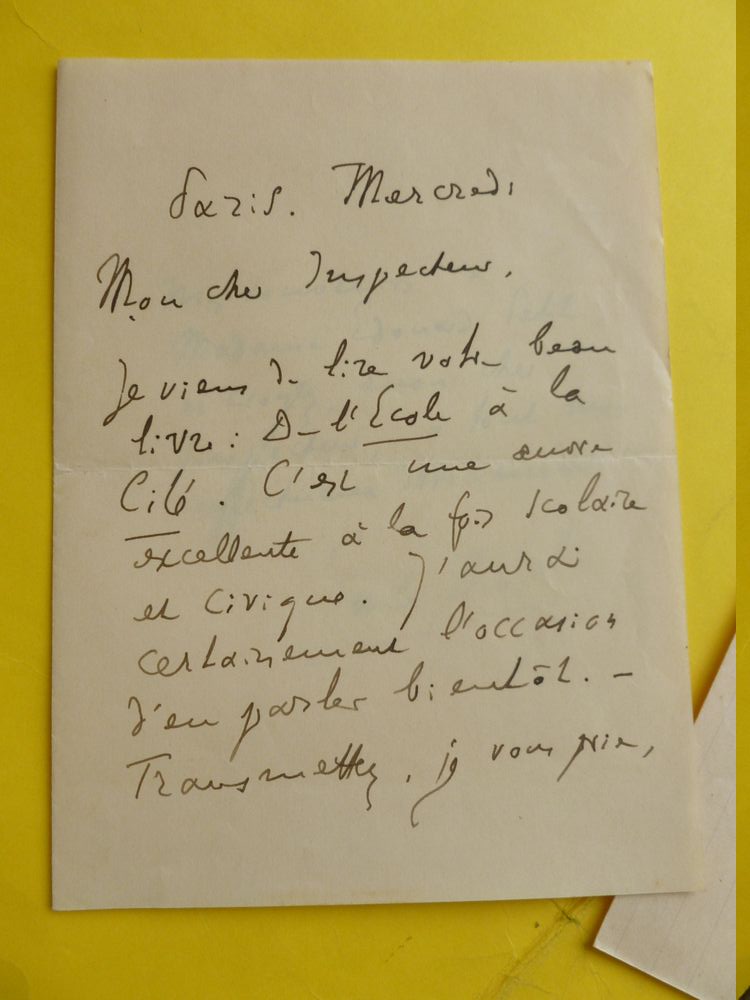 Paris. Mercredi
Mon cher Inspecteur,
Je viens de lire votre beau
livre : De l'École à la
Cité. C'est une œuvre
excellente à la fois scolaire
et civique. J'aurai
certainement l'occasion
d'en parler bientôt. –
Transmettez, je vous prie,